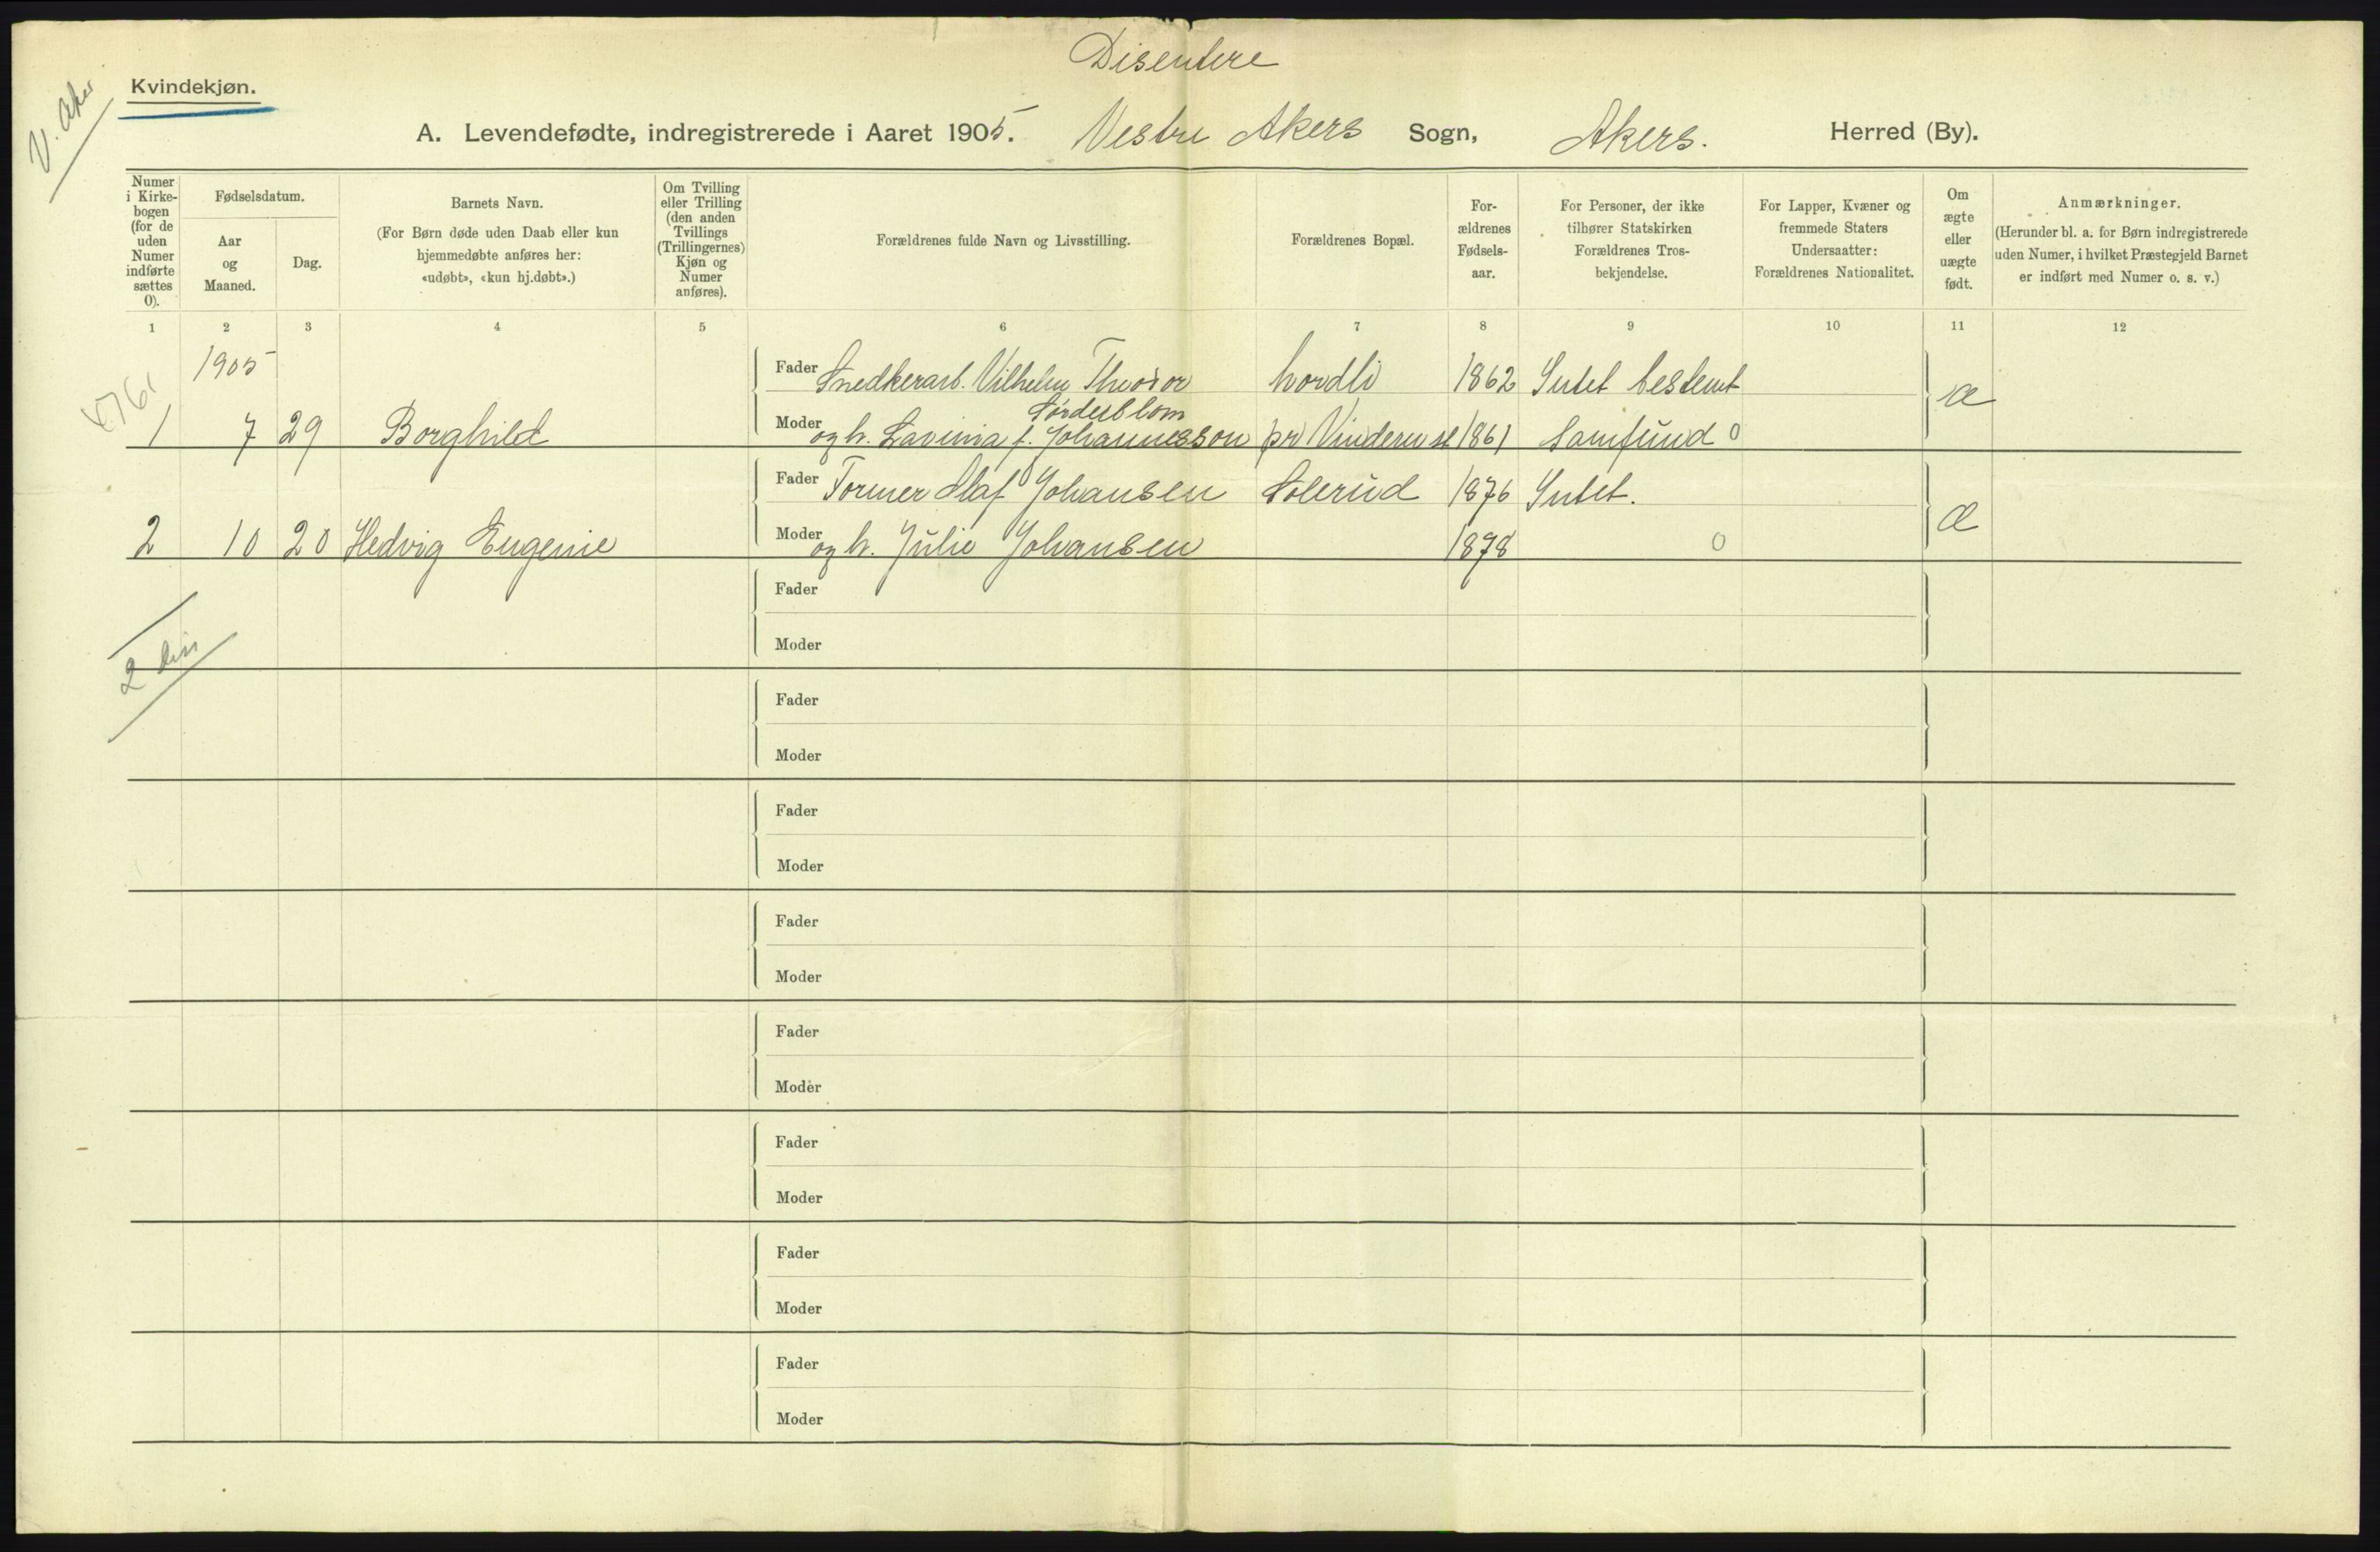 Disentere
V. Aker
Kvindekjøn.
A. Levendefødte, indregistrerede i Aaret 1905. Vestre Akers Sogn, Akers. Herred (By).
Numer i Kirke-bogen (for de uden Numer indførte sættes 0).
Fødselsdatum.
Aar og Maaned.
Dag.
Barnets Navn.
(For Børn døde uden Daab eller kun hjemmedøbte anføres her: «udøbt», «kun hj.døbt».)
Om Tvilling eller Trilling (den anden Tvillings (Trillingernes) Kjøn og Numer anføres).
Forældrenes fulde Navn og Livsstilling.
Forældrenes Bopæl.
For-ældrenes Fødsels-aar.
For Personer, der ikke tilhører Statskirken Forældrenes Tros-bekjendelse.
For Lapper, Kvæner og fremmede Staters Undersaatter: Forældrenes Nationalitet.
Om ægte eller uægte født.
Anmærkninger.
(Herunder bl. a. for Børn indregistrerede uden Numer, i hvilket Præstegjeld Barnet er indført med Numer o. s. v.)
1 2 3 4 5 6 7 8 9 10 11 12
1905 Fader Snedkerarb. Vilhelm Theodor Nordli 1862 Intet bestemt æ
Söderblom
1 7 29 Borghild Moder og h. Lavinia f. Johannesson pr Vinderen st 1861 Samfund 0
Fader Former Olaf Johansen Solerud 1876 Intet. æ
2 10 20 Hedvig Eugenie Moder og h. Julie Johansen 1878 0
Fader
Moder
2 diss
Fader
Moder
Fader
Moder
Fader
Moder
Fader
Moder
Fader
Moder
Fader
Moder
Fader
Moder